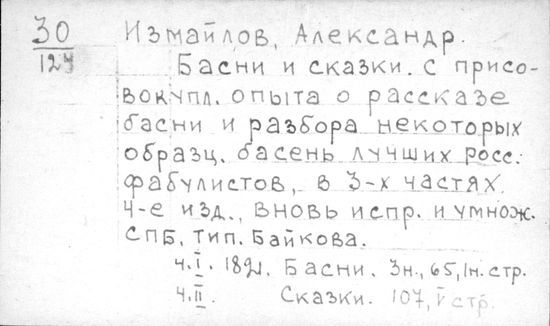 30
124
Измайлов, Александр.
Басни и сказки. С присо-
вокупл. опыта о рассказе
басни и разбора некоторых
образц. басень лучших росс.
фабулистов, в 3-х частях.
4-е изд., вновь испр. и умнож.
СПБ. Тип. Байкова.
ч. I. 1821. Басни. 3н., 65, 1н. стр.
ч. II. Сказки. 107, V стр.